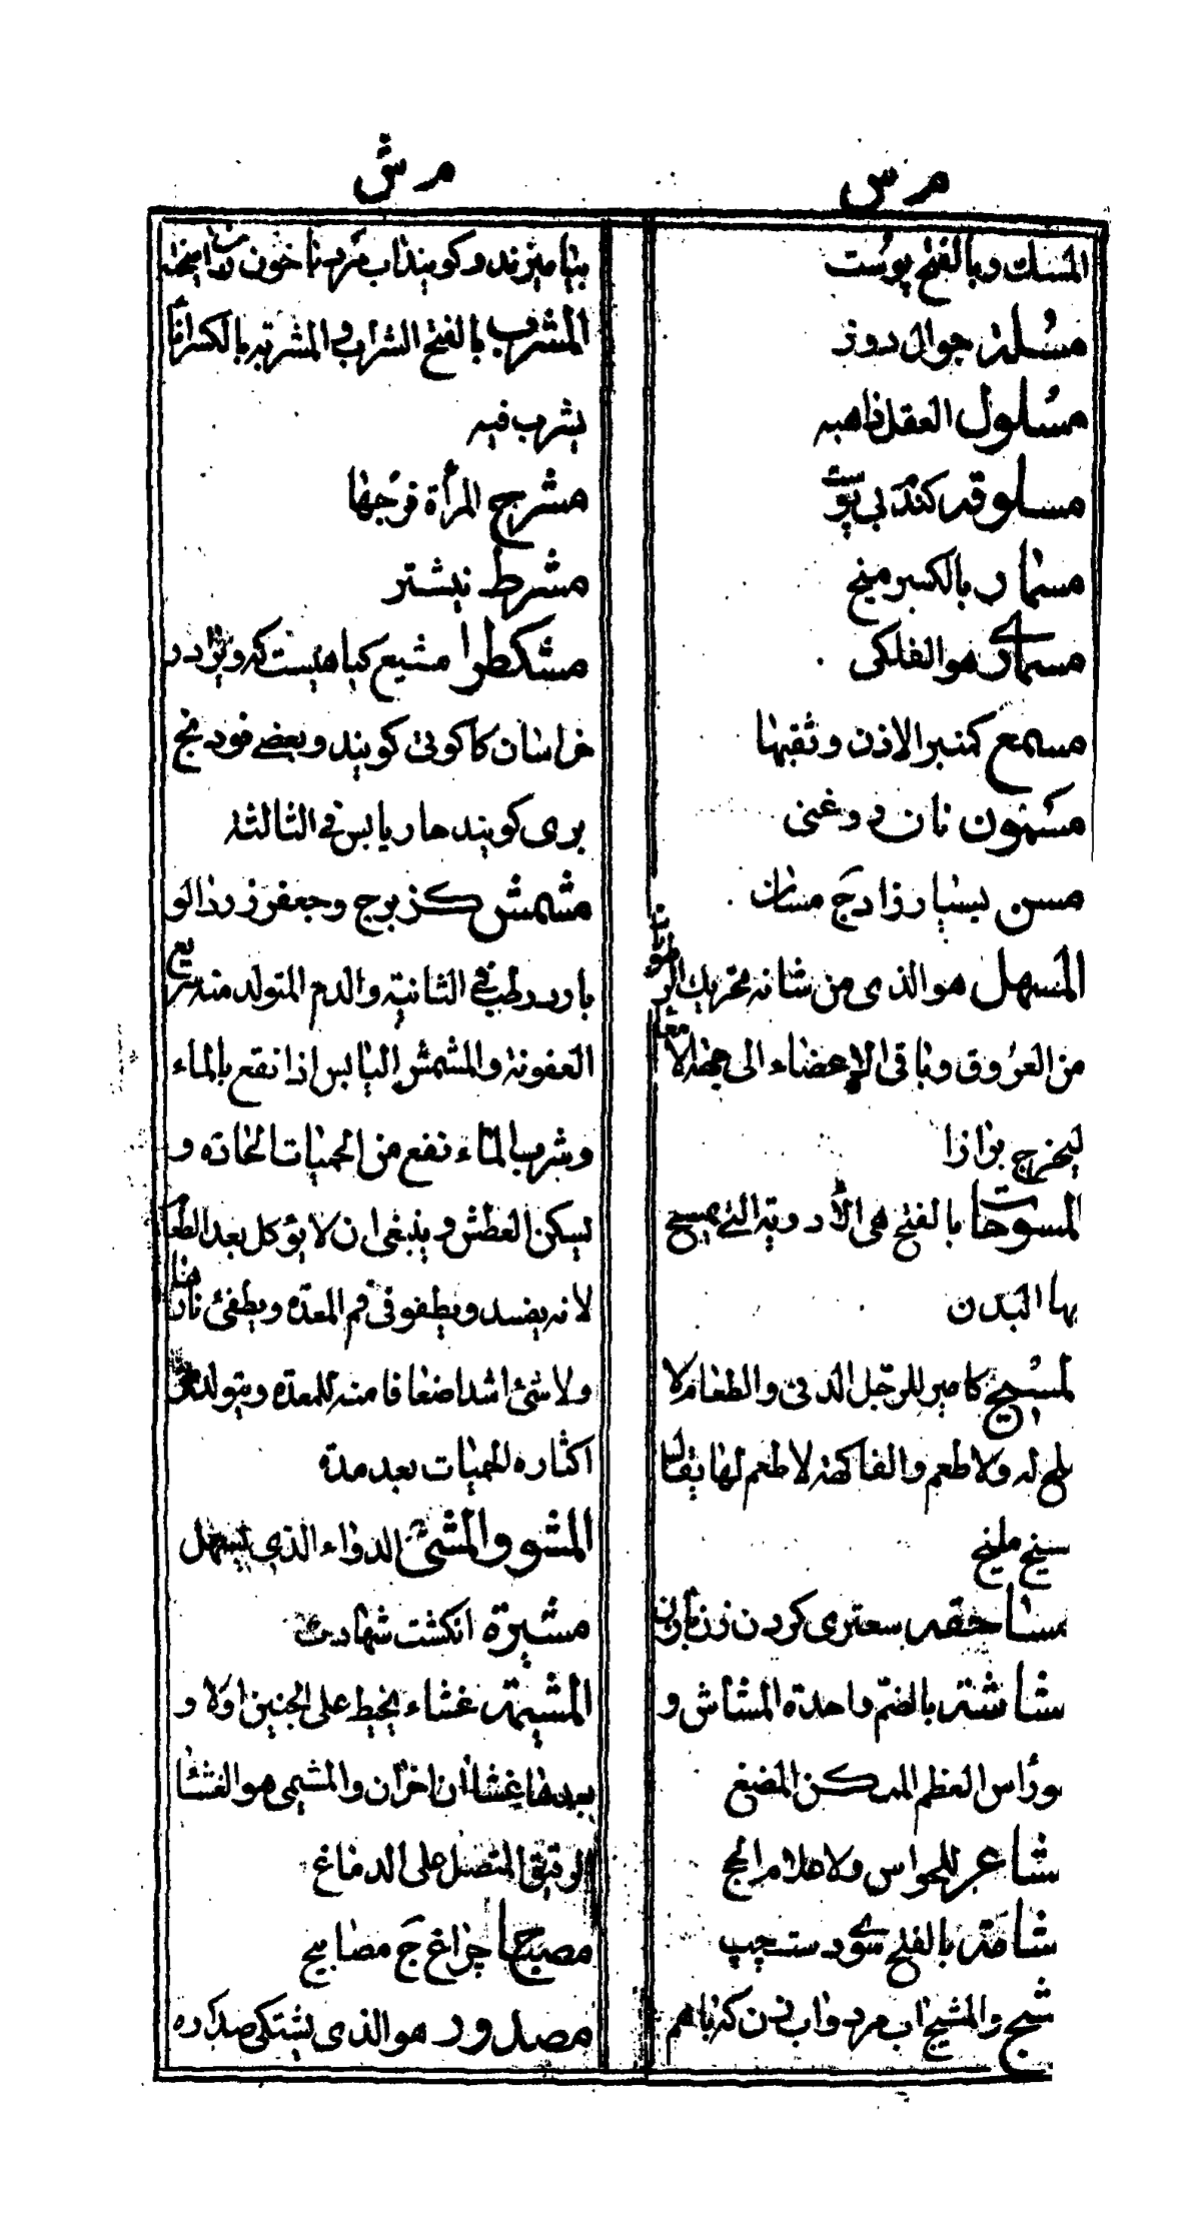 م س
المسك وبالفتح پوست
مسلة جوال دوز
مسلول العقل ذاهبه
مسلوقه كنده بی پوست
مسمار بالكسر میخ
مسماری هو الفلكی
مسمع كمنبر الاذن وثقبها
مسمون نان روغنی
مسن بسیار زاد ج مسان
المسهل هو الذی من شانه تحریك الرطوبات
من العروق وباقی الاعضاء الی جهة الامعا
لیخرج برازا
المسوحات بالفتح هی الأدویة التی یمسح
بها البدن
لمسیخ كامیر للرجل الذی والطعام لا
ملح له ولا طعم والفاكهة لا طعم لها یقال
سیخ ملیخ
مساحقه سعتری كردن زن بازن
شاشة بالضم واحدة المشاش و
هو رأس العظم الممكن المضغ
شاعر للحواس ولاعلام الحج
شامة بالفتح سوی دست چپ
شیج والمشیج اب مرد واب زن كه باهم
م ش
بیامیزند وكویند اب مرد با خون زن امیخته
المشرب بالفتح الشراب والمشربه بالكسر اناء
یشرب فیه
مشرح المرأة فرجها
مشرط نیشتر
مشكطرا مشیع كیاهیست كه و ترا در
خراسان كاكوتی كویند وبعضی فودنج
بری كویند حار یابس فی الثالثة
مشمش كزبرج وجعفر زردالو
بارد رطب فی الثانیة والدم المتولد منه سریع
العفونة والمشمش الیابس اذا نقع بالماء
وشرب الماء نفع من الحمیات الحاده و
یسكن العطش وینبغی ان لا یؤكل بعد الطعام
لانه یفسد ویطفو فی فم المعده ویطفئ نارها
ولا شئ اشد اضعافا منه للمعده ویتولد من
اكثاره الحمیات بعد مدة
المشو والمشئ الدواء الذی یسهل
مشیرة انكشت شهادت
المشیمة غشاء یحیط علی الجنین اولا و
بعدها غشاأن اخران والمشیمی هو الغشا
الرقیق المتصل علی الدماغ
مصباح چراغ ج مصابیح
مصدور هو الذی یشتكی صدره